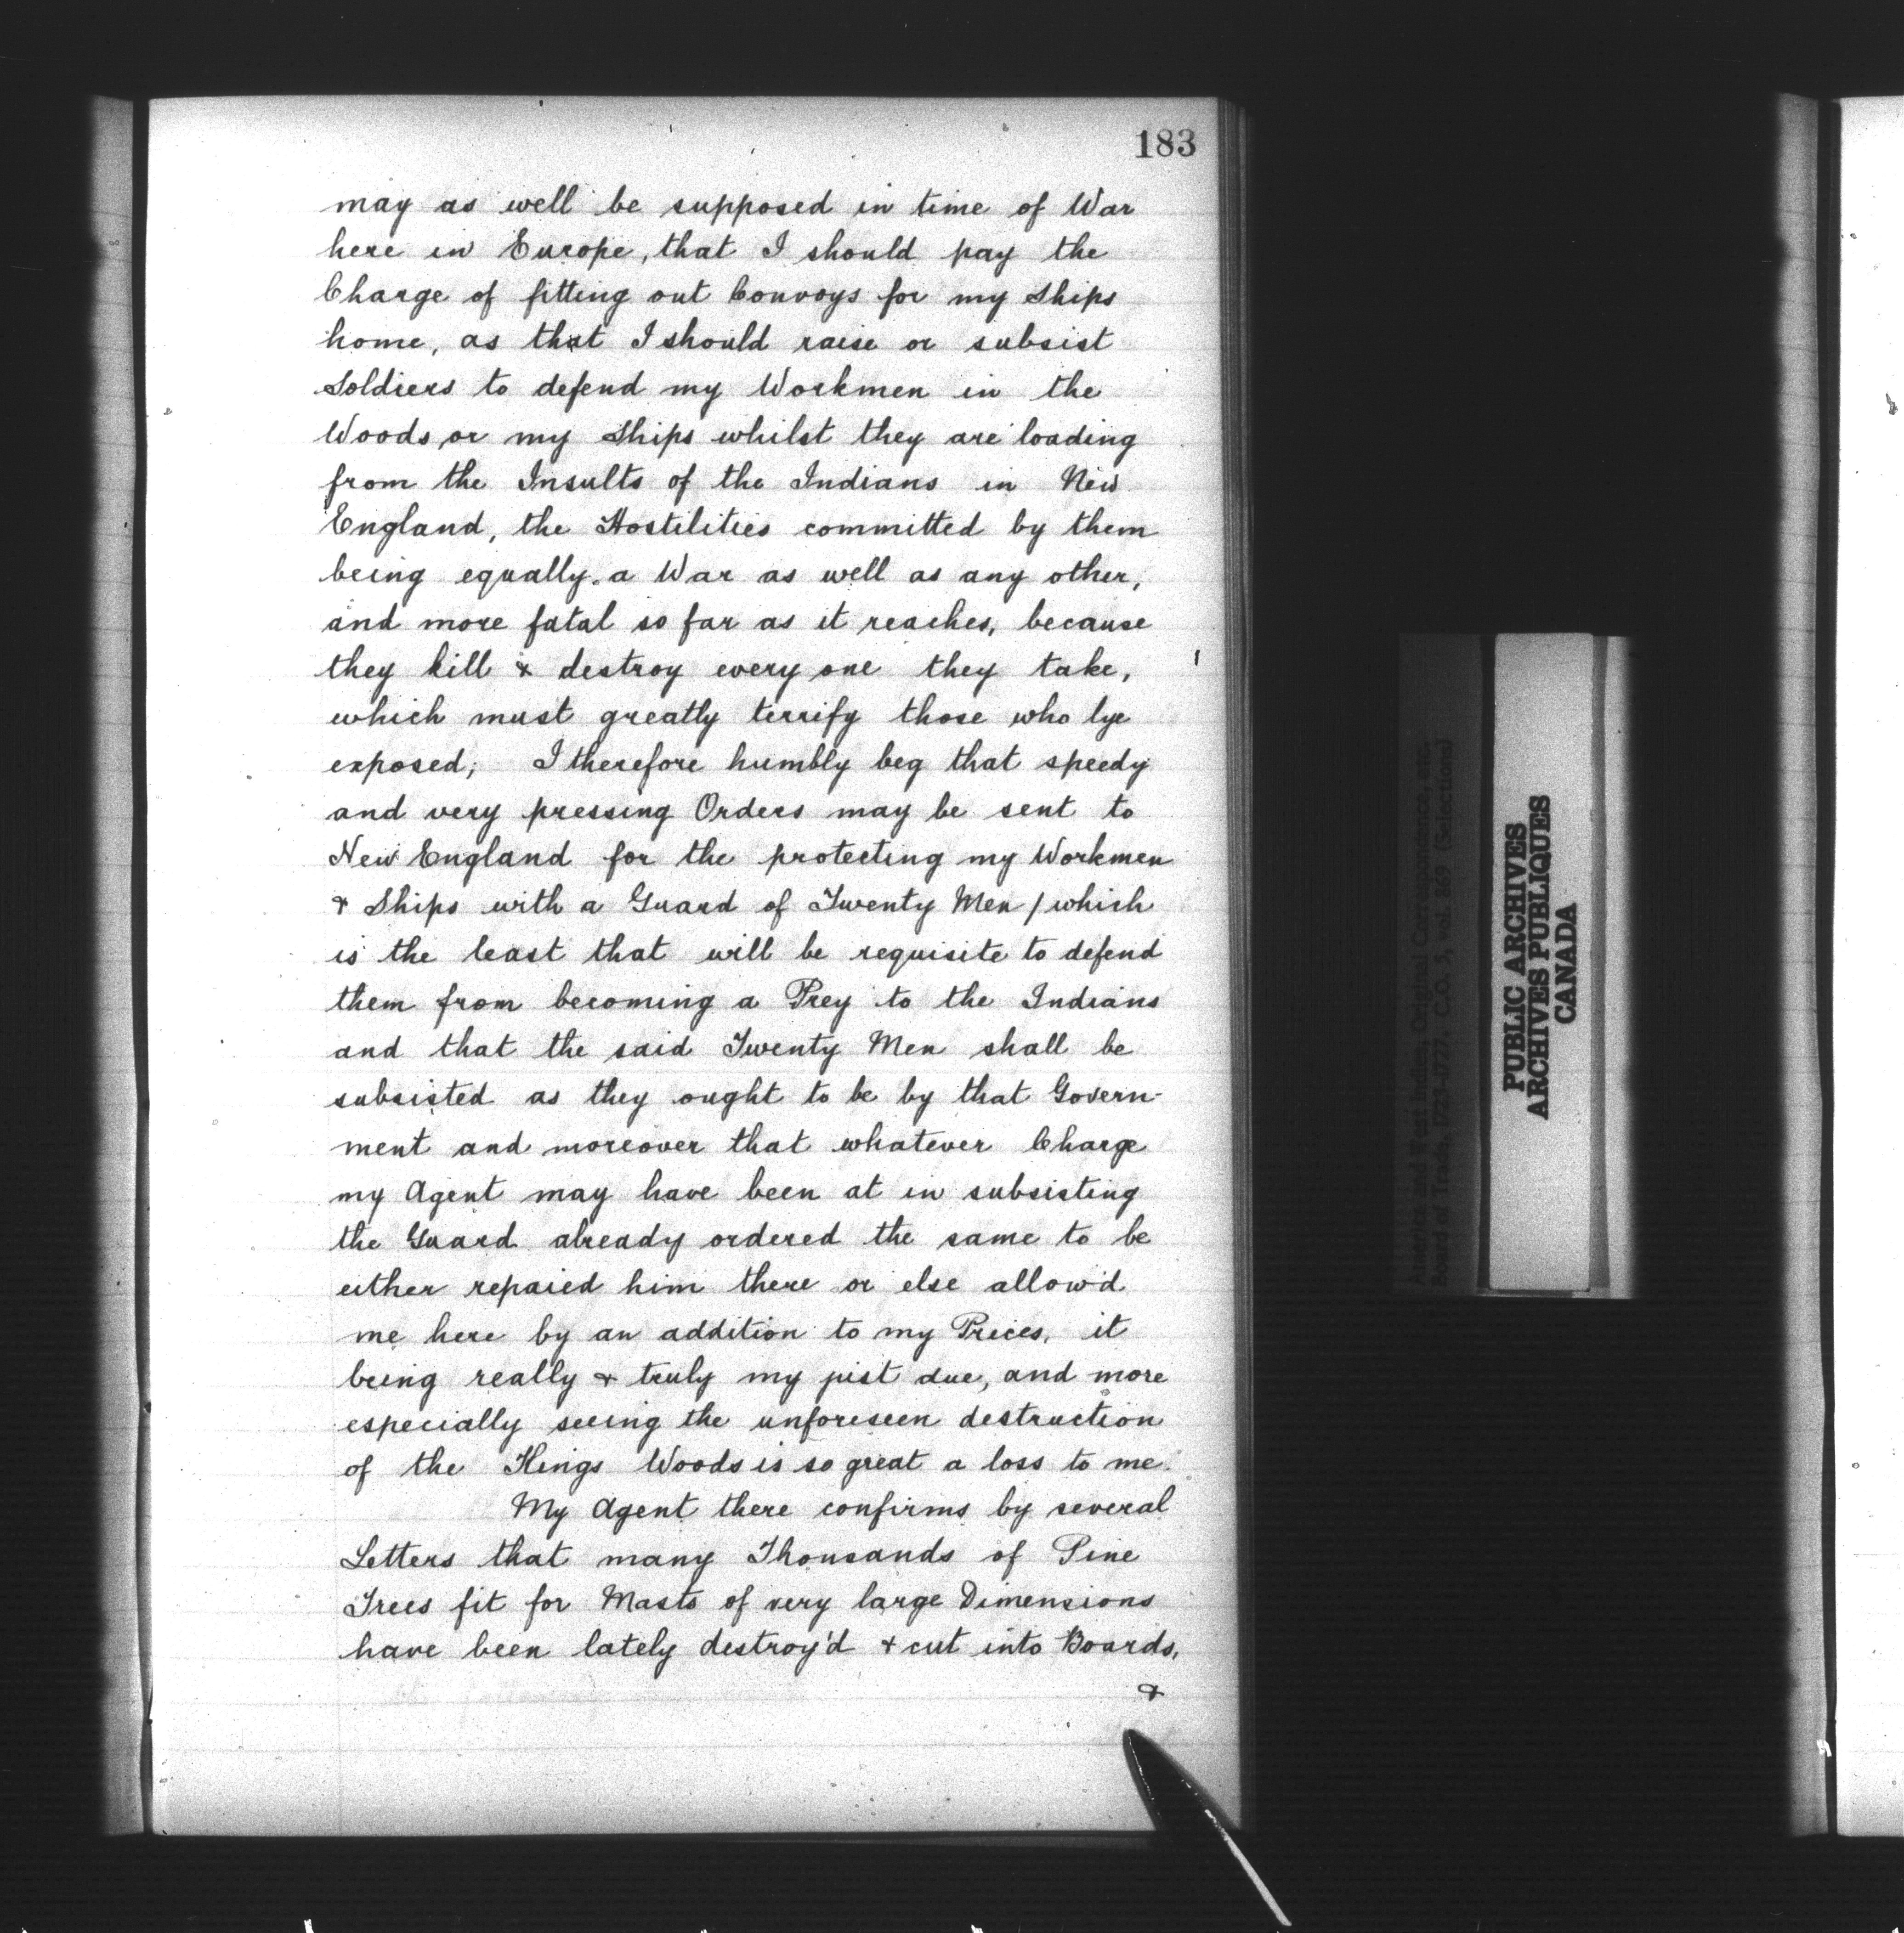 183
may as well be supposed in time of War
here in Europe, that I should pay the
Charge of fitting out Convoys for my Ships
home, as that I should raise or subsist
Soldiers to defend my Workmen in the
Woods or my Ships whilst they are loading
from the Insults of the Indians in New
England, the Hostilities committed by them
being equally a War as well as any other,
and more fatal so far as it reaches, because
they kill & destroy every one they take,
which must greatly terrify those who lye
exposed; I therefore humbly beg that speedy
and very pressing Orders may be sent to
New England for the protecting my Workmen
& Ships with a Guard of Twenty Men / which
is the least that will be requisite to defend
them from becoming a Prey to the Indians
and that the said Twenty Men shall be
subsisted as they ought to be by that Govern-
ment and moreover that whatever Charge
my Agent may have been at in subsisting
the Guard already ordered the same to be
either repaied him there or else allow'd
me here by an addition to my Prices, it
being really & truly my just due, and more
especially seeing the unforeseen destruction
of the Kings Woods is so great a loss to me.
My Agent there confirms by several
Letters that many Thousands of Pine
Trees fit for Masts of very large Dimensions
have been lately destroy'd & cut into Boards,
&
America and West Indies, Original Correspondence, etc.
Board of Trade, 1723-1727. C.O. 5, vol. 869 (Selections)
PUBLIC ARCHIVES
ARCHIVES PUBLIQUES
CANADA